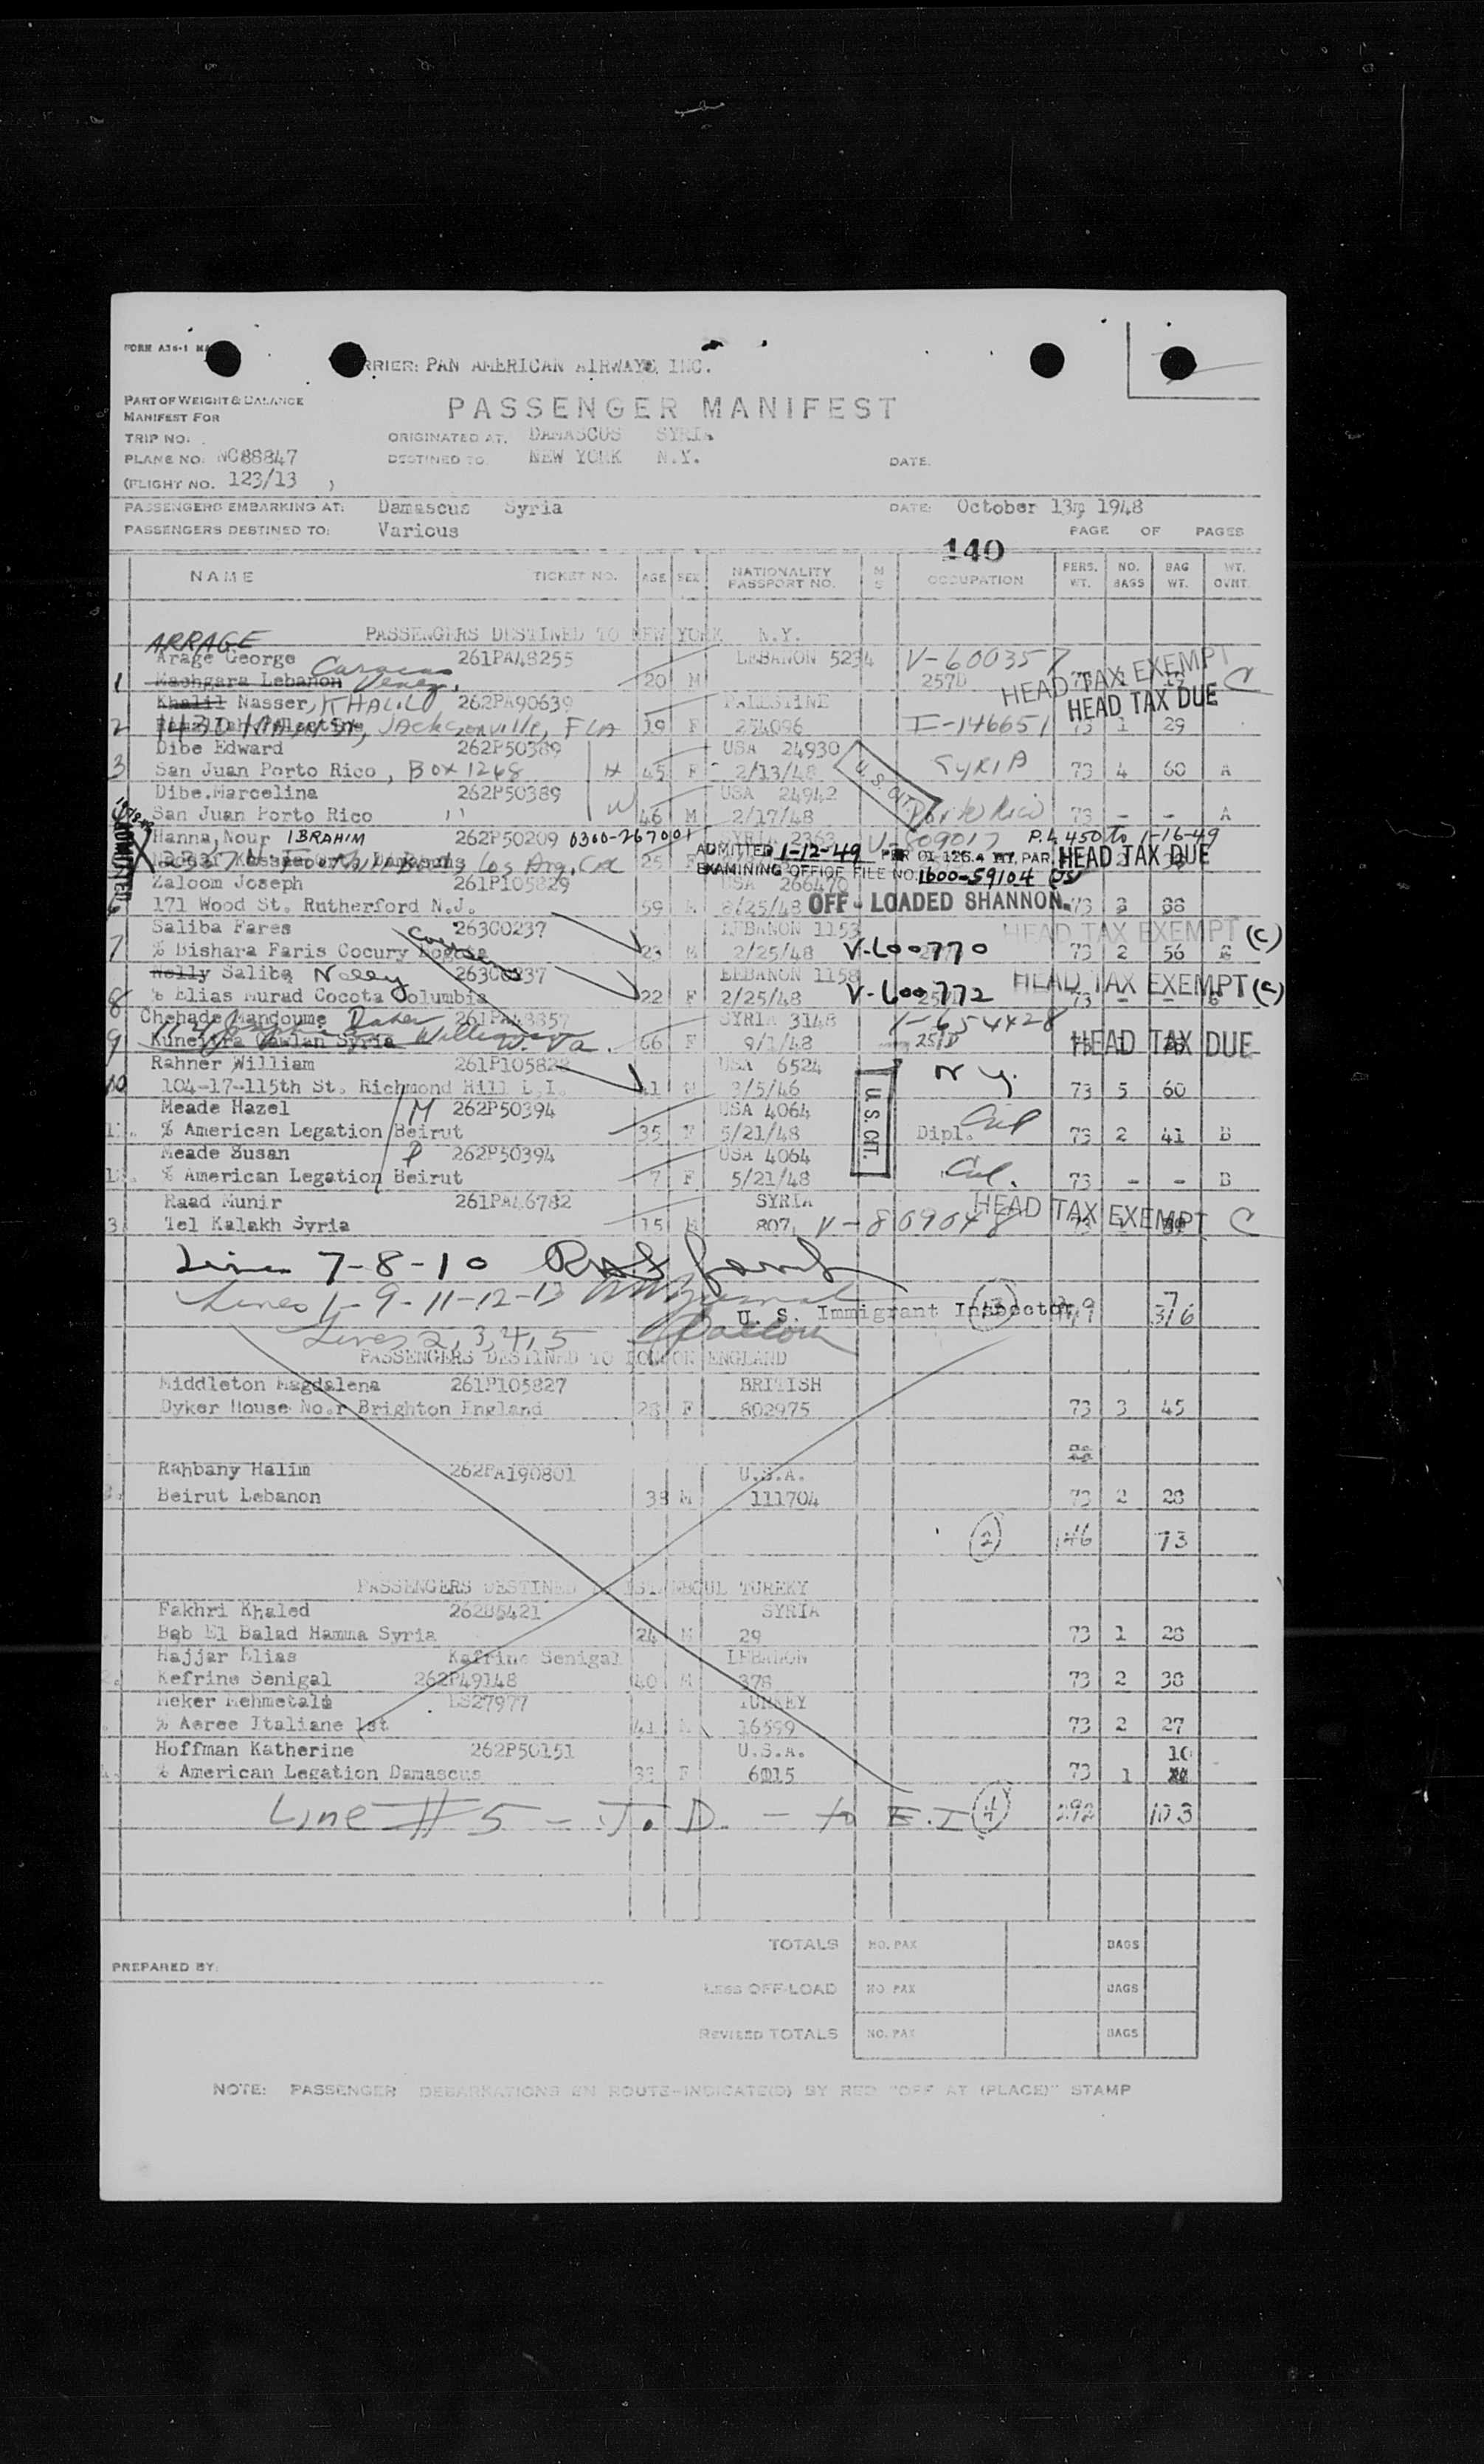 FORM A36-1
CARRIER: PAN AMERICAN AIRWAYS, INC.
PART OF WEIGHT & BALANCE
MANIFEST FOR
PASSENGER MANIFEST
TRIP NO.
ORIGINATED AT. DAMASCUS SYRIA
PLANE NO. NC88847
DESTINED TO. NEW YORK N.Y.
DATE.
(FLIGHT NO. 123/13 )
PASSENGERS EMBARKING AT: Damascus Syria
DATE: October 13, 1948
PASSENGERS DESTINED TO: Various
PAGE OF PAGES
140
NAME TICKET NO. AGE SEX NATIONALITY PASSPORT NO. M S OCCUPATION PERS. WT. NO. BAGS BAG WT. WT. OVNT.
PASSENGERS DESTINED TO NEW YORK N.Y.
ARRAGE
Arage George 261PA48255 LEBANON 5234 V-600357 HEAD TAX EXEMPT C
1 Machgara Lebanon 20 M 257D
Khalil Nasser, KHALIL 262PA90639 PALESTINE HEAD TAX DUE
2 1430 MAIN St, JACKsonville, FLA 19 F 254096 I-146651 73 1 29
Dibe Edward 262P50389 USA 24930 U.S. CIT.
3 San Juan Porto Rico, Box 1268 H 45 2/13/48 SYRIA 73 4 60 A
Dibe.Marcelina 262P50389 USA 24942
San Juan Porto Rico " W 46 M 2/17/48 Porto Rico 73 - - A
ADMITTED
Hanna, Nour IBRAHIM 262P50209 0300-267001 SYRIA 2363 V-809017 P.L 450 to 1-16-49
25 F ADMITTED 1-12-49 PER HEAD TAX DUE
EXAMINING OFFICE FILE NO. 1600-59104
Zaloom Joseph 261P105829 USA 266470
6 171 Wood St. Rutherford N.J. 59 M 8/25/48 OFF-LOADED SHANNON. 73 3 88
Saliba Fares 263C0237 LEBANON 1153 HEAD TAX EXEMPT (C)
7 % Bishara Faris Cocury Bogota 23 M 2/25/48 V-600770 73 2 56
Nelly Saliba Nelly 263C0237 LEBANON 1158 HEAD TAX EXEMPT (C)
8 % Elias Murad Cocota Columbia 22 F 2/25/48 V-600772 73 - -
Chehade Mandoume Daher 261PA48357 SYRIA 3148 V-654428
9 Kuneitra Gawlan Syria W. Va. 66 F 9/1/48 HEAD TAX DUE
Rahner William USA 6524 N Y.
10 104-17-115th St. Richmond Hill L.I. 41 M 3/5/46 73 5 60
Meade Hazel M 262P50394 USA 4064 U.S. CIT. Cal
% American Legation Beirut 35 F 5/21/48 Dipl. 73 2 41 B
Meade Susan 262P50394 USA 4064
% American Legation Beirut 7 F 5/21/48 Cal. 73 - - B
Raad Munir 261PA46782 SYRIA HEAD TAX EXEMPT C
3 Tel Kalakh Syria 15 M 807 V-809048 73
Line 7-8-10
Lines 1-9-11-12-13
U. S. Immigrant Inspector 13
Lines 2, 3, 4, 5
PASSENGERS DESTINED TO LONDON ENGLAND
Middleton Magdalena 261P105827 BRITISH
Dyker House No.r Brighton England 28 F 802975 73 3 45
Rahbany Halim 262PA190801 U.S.A.
Beirut Lebanon 38 M 111704 73 2 28
2 146 73
PASSENGERS DESTINED TO ISTANBOUL TURKEY
Fakhri Khaled SYRIA
Bab El Balad Hamma Syria 24 M 29 73 1 28
Hajjar Elias Kafrine Senigal LEBANON
Kefrine Senigal 262P49148 40 M 378 73 2 38
Meker Mehmetale TURKEY
% Aeree Italiane Ist 41 M 16599 73 2 27
Hoffman Katherine 262P50151 U.S.A. 10
% American Legation Damascus 33 F 6015 73 1
Line # 5 - J. D. - to E.I 4 292 103
TOTALS NO. PAX BAGS
PREPARED BY:
LESS OFF-LOAD NO. PAX BAGS
REVISED TOTALS NO. PAX BAGS
NOTE: PASSENGER DEBARKATIONS EN ROUTE-INDICATE(D) BY RED "OFF AT (PLACE)" STAMP